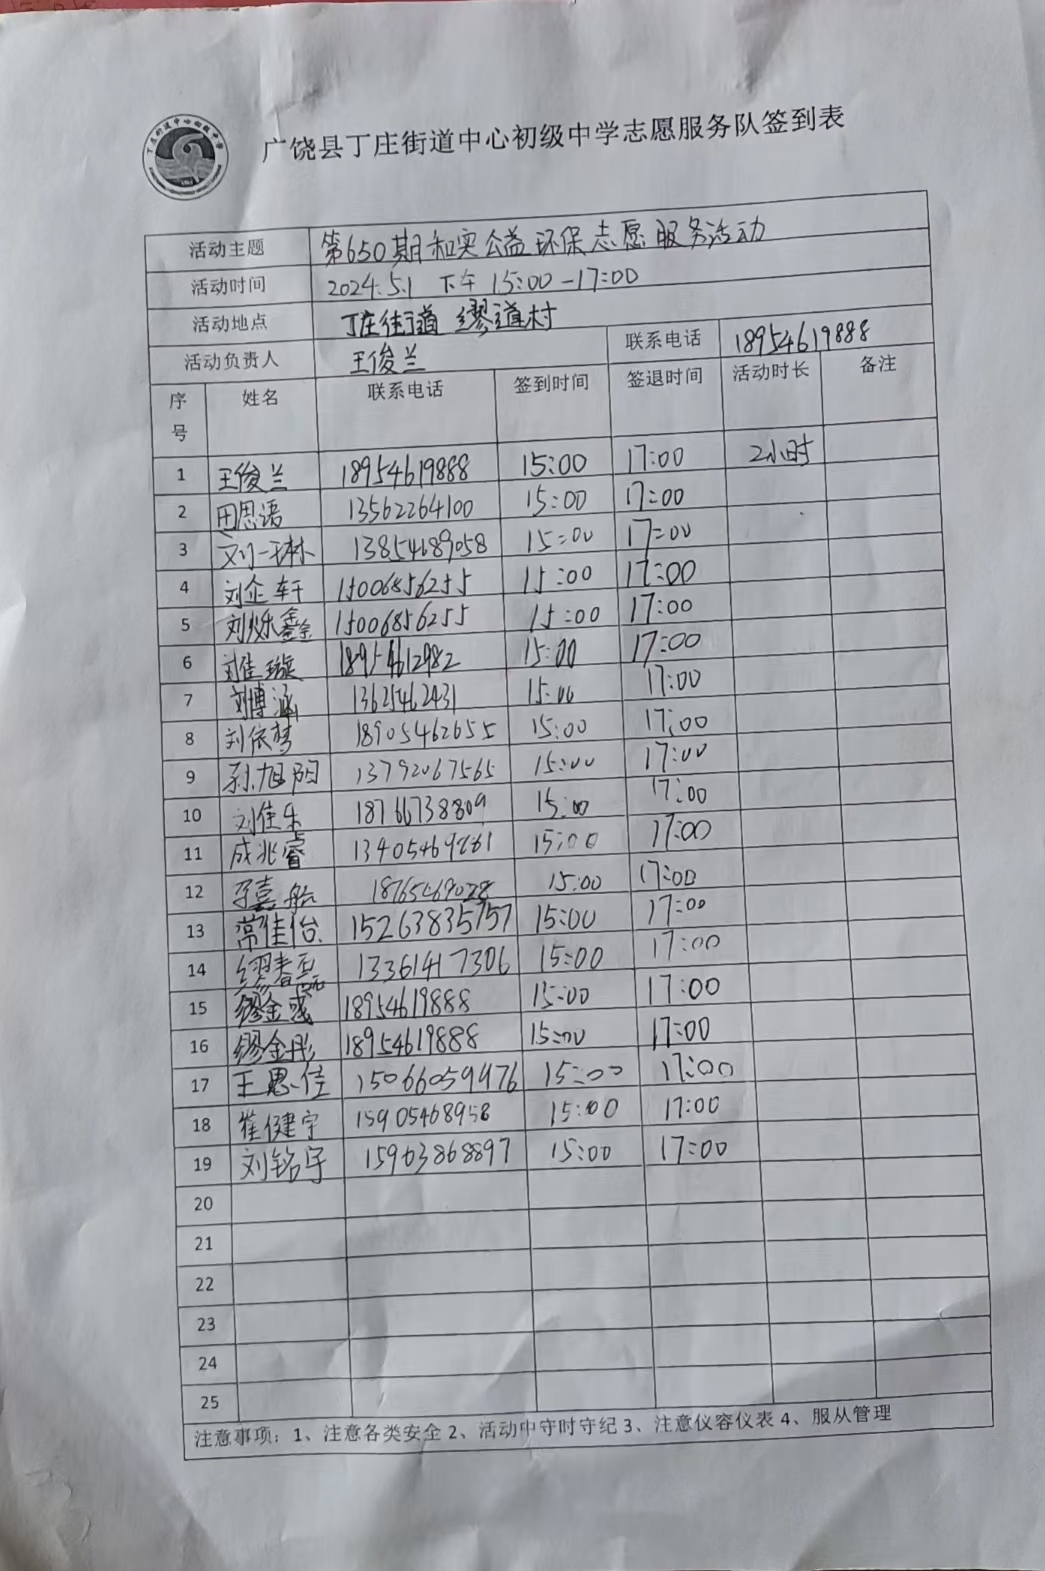 广饶县丁庄街道中心初级中学志愿服务队签到表
活动主题 第650期和实公益环保志愿服务活动
活动时间 2024.5.1 下午 15:00-17:00
活动地点 丁庄街道 缪道村
活动负责人 王俊兰 联系电话 18954619888
序号 姓名 联系电话 签到时间 签退时间 活动时长 备注
1 王俊兰 18954619888 15:00 17:00 2小时
2 田思语 13562264100 15:00 17:00
3 刘一琳 13854689058 15:00 17:00
4 刘企轩 15006856255 15:00 17:00
5 刘烁鑫 15006856255 15:00 17:00
6 刘佳璇 18954612982 15:00 17:00
7 刘博涵 13625462431 15:00 17:00
8 刘依梦 18905462655 15:00 17:00
9 孙旭阳 13792067565 15:00 17:00
10 刘佳乐 18766738809 15:00 17:00
11 成兆睿 15:00 17:00
12 15:00 17:00
13 常佳怡 15263835757 15:00 17:00
14 13361417306 15:00 17:00
15 缪金彧 18954619888 15:00 17:00
16 缪金彤 18954619888 15:00 17:00
17 王思佳 15066059476 15:00 17:00
18 崔健宇 15905468958 15:00 17:00
19 刘铭宇 15963868897 15:00 17:00
20
21
22
23
24
25
注意事项：1、注意各类安全 2、活动中守时守纪 3、注意仪容仪表 4、服从管理